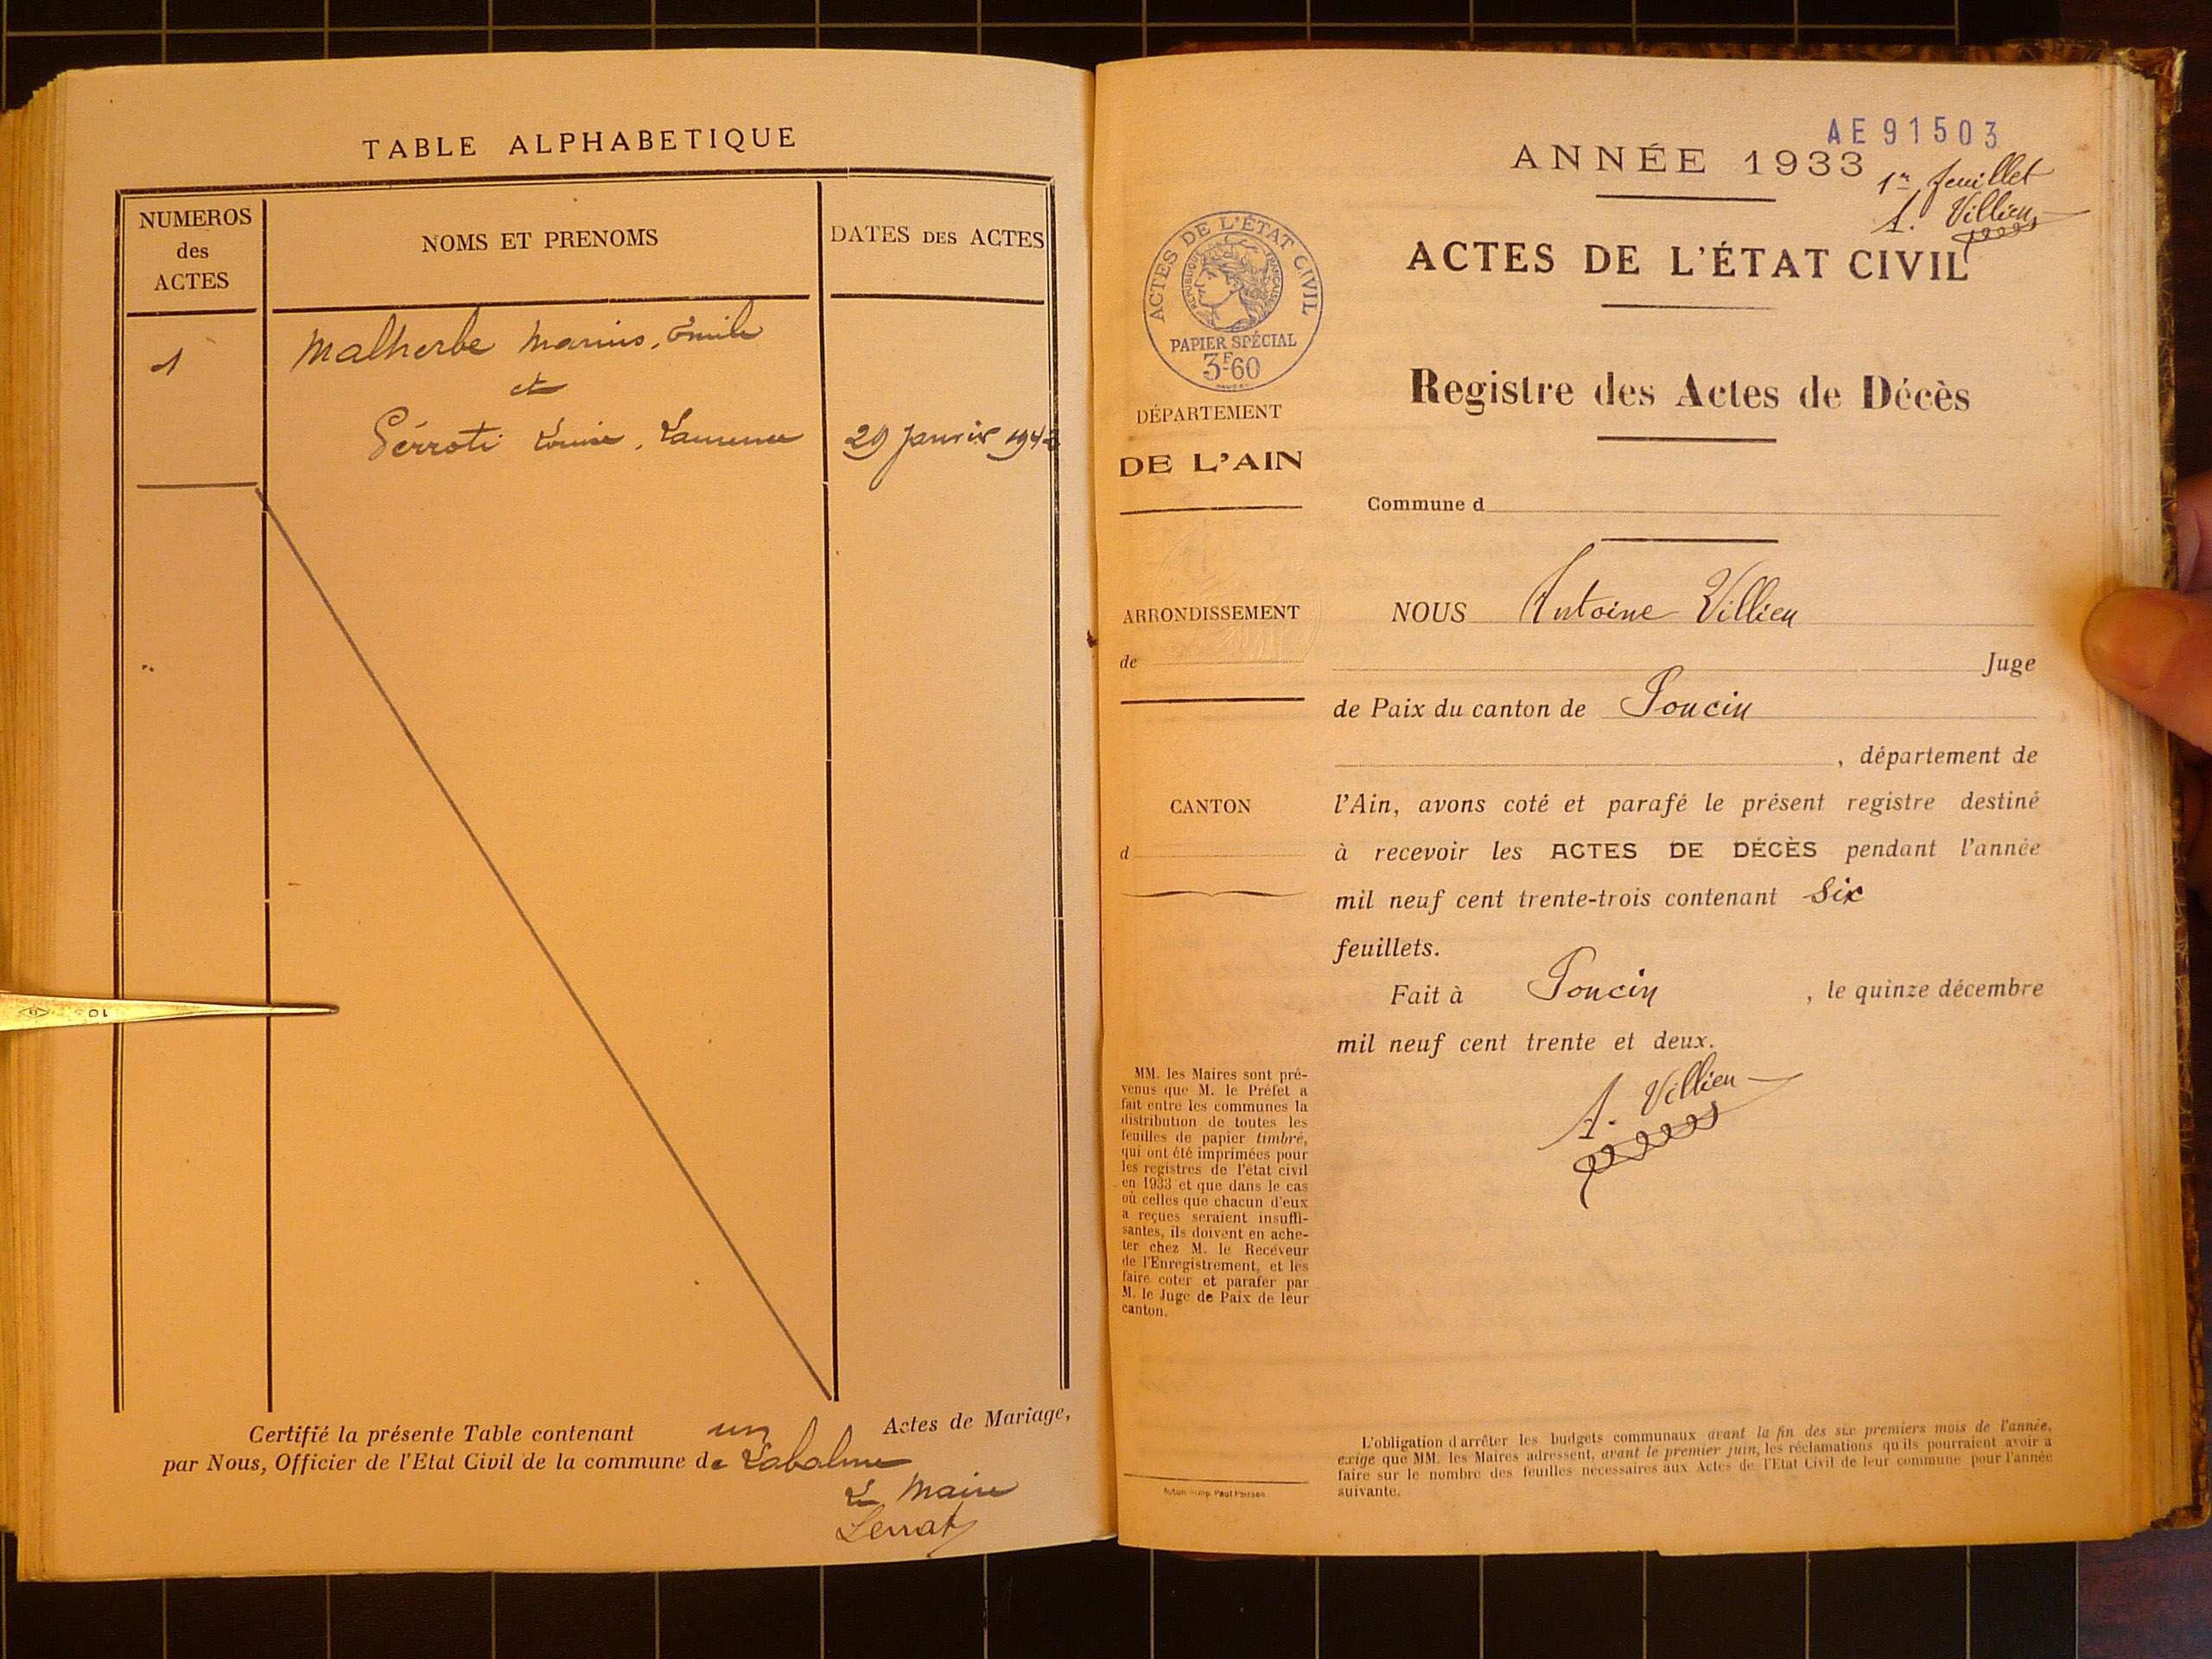 TABLE ALPHABETIQUE
NUMEROS
des
ACTES
NOMS ET PRENOMS
DATES DES ACTES
1
Malherbe Marius, Emile
et
Perroti Louise, Laurence
29 Janvier 194
Certifié la présente Table contenant un Actes de Mariage,
par Nous, Officier de l'Etat Civil de la commune de Labalme
Le Maire
AE 91503
ANNÉE 1933
1er feuillet
A. Villien
ACTES DE L'ÉTAT CIVIL
ACTES DE L'ÉTAT CIVIL
RÉPUBLIQUE FRANÇAISE
PAPIER SPÉCIAL
3F60
Registre des Actes de Décès
DÉPARTEMENT
DE L'AIN
Commune d
ARRONDISSEMENT
de
CANTON
d
NOUS Antoine Villien
Juge
de Paix du canton de Poncin
, département de
l'Ain, avons coté et parafé le présent registre destiné
à recevoir les ACTES DE DÉCÈS pendant l'année
mil neuf cent trente-trois contenant six
feuillets.
Fait à Poncin , le quinze décembre
mil neuf cent trente et deux.
A. Villien
MM. les Maires sont pré-
venus que M. le Préfet a
fait entre les communes la
distribution de toutes les
feuilles de papier timbré,
qui ont été imprimées pour
les registres de l'état civil
en 1933 et que dans le cas
où celles que chacun d'eux
a reçues seraient insuffi-
santes, ils doivent en ache-
ter chez M. le Receveur
de l'Enregistrement, et les
faire coter et parafer par
M. le Juge de Paix de leur
canton.
L'obligation d'arrêter les budgets communaux avant la fin des six premiers mois de l'année,
exige que MM. les Maires adressent, avant le premier juin, les réclamations qu'ils pourraient avoir à
faire sur le nombre des feuilles nécessaires aux Actes de l'Etat Civil de leur commune pour l'année
suivante.
Imp. Paul